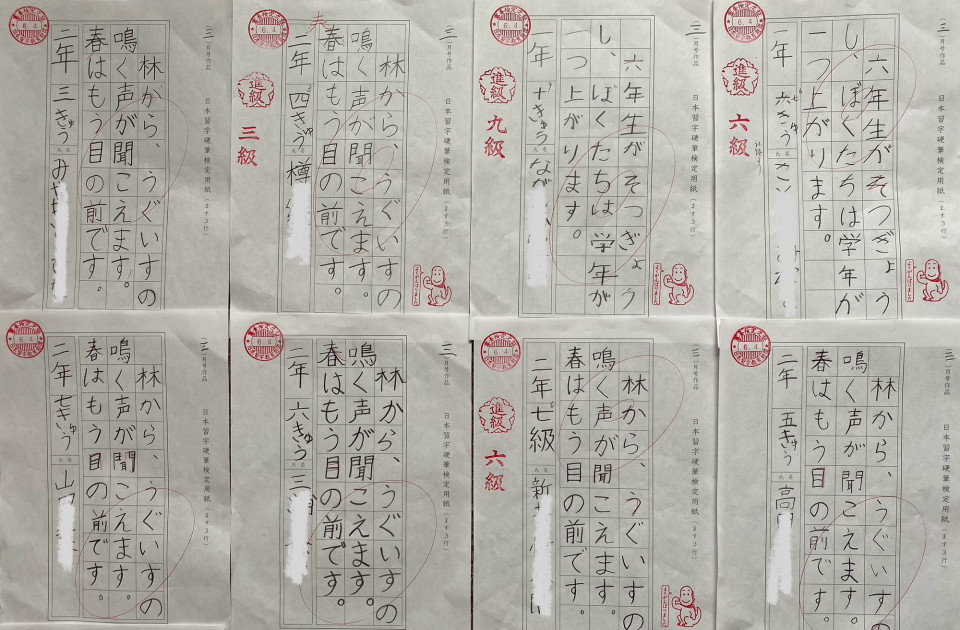 三月号作品
日本習字硬筆検定用紙(ます3行)
林から、うぐいすの
鳴く声が聞こえます。
春はもう目の前です。
二年 三きゅう 氏名
6.4
三月号作品
日本習字硬筆検定用紙(ます3行)
林から、うぐいすの
鳴く声が聞こえます。
春はもう目の前です。
二年 四きゅう 氏名 樽
6.4
進級
三級
三月号作品
日本習字硬筆検定用紙(ます3行)
六年生がそつぎょう
し、ぼくたちは学年が
一つ上がります。
一年 十きゅう 氏名 なが
6.4
進級
九級
三月号作品
日本習字硬筆検定用紙(ます3行)
六年生がそつぎょう
し、ぼくたちは学年が
一つ上がります。
一年 氏名
6.4
進級
六級
三月号作品
日本習字硬筆検定用紙(ます3行)
林から、うぐいすの
鳴く声が聞こえます。
春はもう目の前です。
二年 七きゅう 氏名 山
6.4
三月号作品
日本習字硬筆検定用紙(ます3行)
林から、うぐいすの
鳴く声が聞こえます。
春はもう目の前です。
二年 六きゅう 氏名 三
6.4
三月号作品
日本習字硬筆検定用紙(ます3行)
林から、うぐいすの
鳴く声が聞こえます。
春はもう目の前です。
二年 七級 氏名 新
6.4
進級
六級
三月号作品
日本習字硬筆検定用紙(ます3行)
林から、うぐいすの
鳴く声が聞こえます。
春はもう目の前です。
二年 五きゅう 氏名 高
6.4